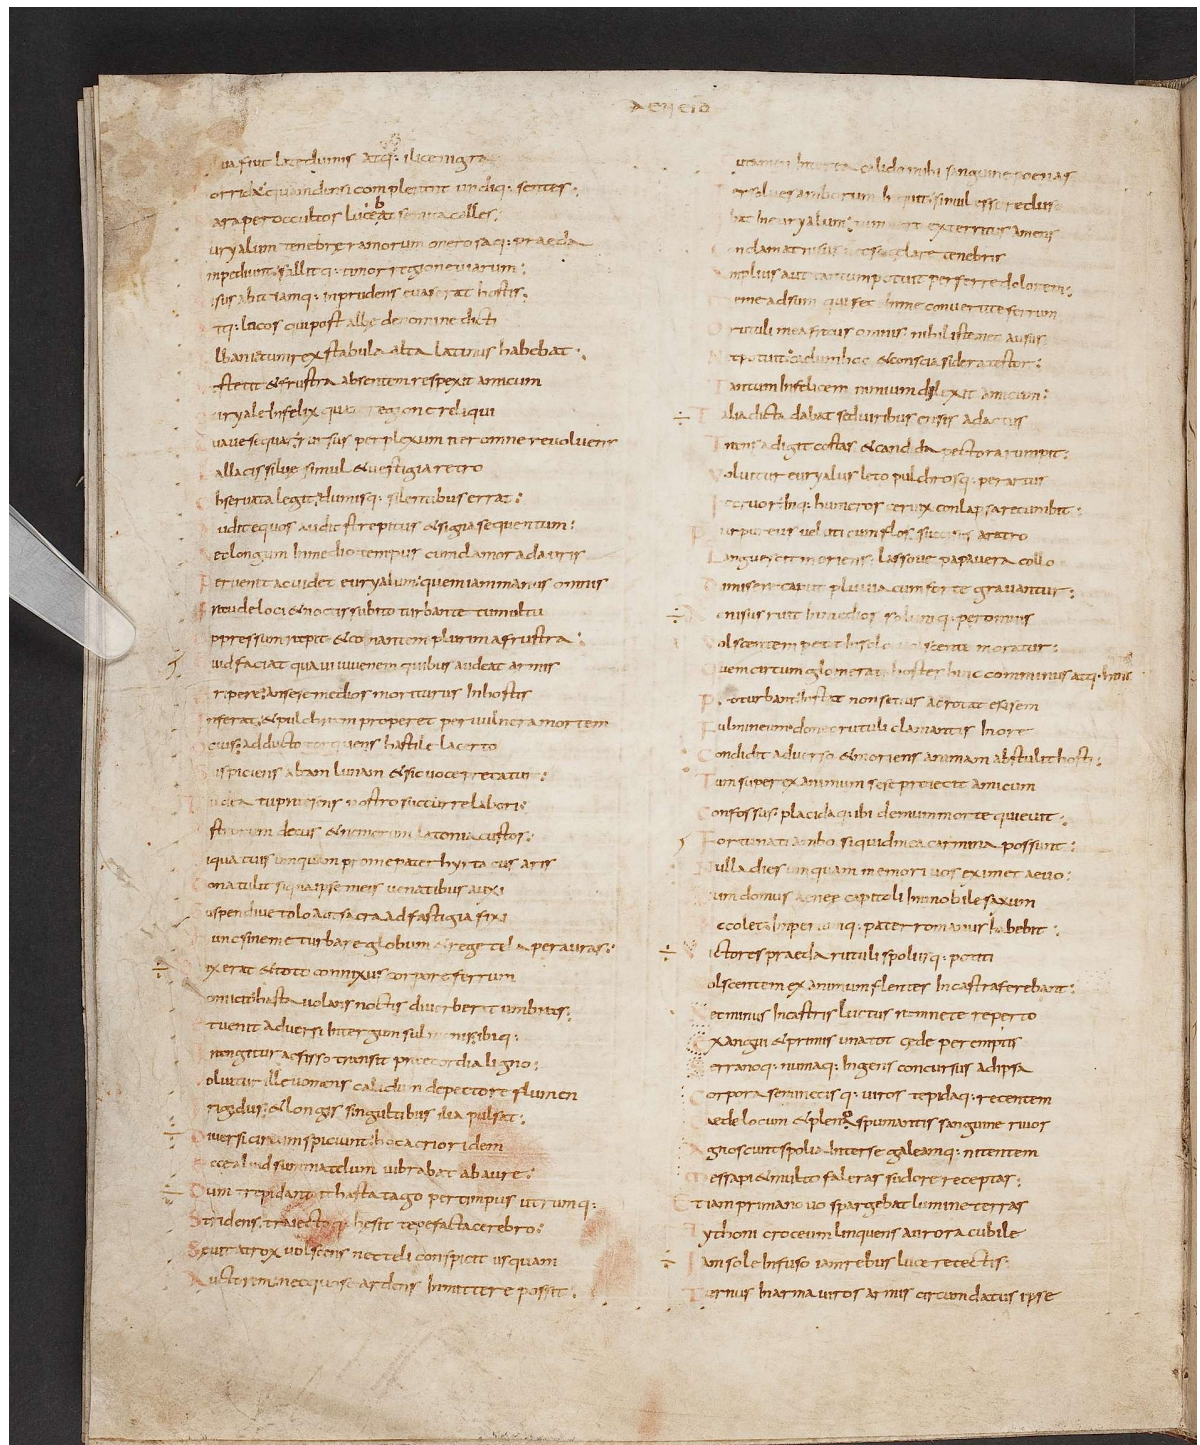 AENEID
ua fuit late dumis atq: ilice nigra
orrida quam densi complerant undiq: sentes:
ara per occultos lucebat semita calles:
uryalum tenebrę ramorum onerosaq: praeda
inpediunt: fallitq: timor regione uiarum:
isus abit iamq: inprudens euaserat hostis:
tq: lucos qui post albę de nomine dicti
lbani tum rex stabula alta latinus habebat:
stetit & frustra absentem respexit amicum
uryale infelix qua regione reliqui
uaue sequar rursus perplexum iter omne reuoluens
allacis siluę simul & uestigia retro
bseruata legit: dumisq: silentibus errat:
udit equos audit strepitus & signa sequentum:
ec longum in medio tempus cum clamor ad auris
Peruenit ac uidet euryalum: quem iam manus omnis
raude loci & noctis subito turbante tumultu
ppressum rapit & conantem plurima frustra:
uid faciat qua ui iuuenem quibus audeat armis
ripere: an sese medios moriturus in hostis
nferat: & pulchram properet per uulnera mortem
cius adducto torquens hastile lacerto
Suspiciens altam lunam & sic uoce precatur:
Tu dea tu praesens nostro succurre labori:
strorum decus & nemorum latonia custos:
iqua tuis umquam pro me pater hyrtacus aris
ona tulit siqua ipse meis uenatibus auxi
Suspendiue tolo aut sacra ad fastigia fixi
unc sine me turbare globum & rege tela per auras:
ixerat & toto connixus corpore ferrum
onicit: hasta uolans noctis diuerberat umbras:
t uenit aduersi in tergum sulmonis: ibiq:
rangitur ac fisso transit praecordia ligno:
oluitur ille uomens calidum de pectore flumen
rigidus: & longis singultibus ilia pulsat:
Diuersi circumspiciunt: hoc acrior idem
cce aliud summa telum uibrabat ab aure:
Dum trepidant it hasta tago per timpus utrumq:
Stridens. traiectoq: hesit tepefacta cerebro:
Seuit atrox uolscens nec teli conspicit usquam
Auctorem: nec quo se ardens inmittere possit:
u tamen interea calido mihi sanguine poenas
ersolues amborum inquit: simul ense recluso
bat in euryalum: tum uero exterritus amens
onclamat nisus: nec se celare tenebris
mplius aut tantum potuit perferre dolorem:
e me adsum qui feci in me conuertite ferrum
O rutuli mea fraus omnis: nihil iste nec ausus
Nec potuit: caelum hoc & conscia sidera testor:
Tantum infelicem nimium dilexit amicum:
Talia dicta dabat sed uiribus ensis adactus
Transadigit costas & candida pectora rumpit:
Voluitur euryalus leto pulchrosq: per artus
It cruor: inq: humeros ceruix conlapsa recumbit:
Purpureus ueluti cum flos succisus aratro
Languescit moriens: lassoue papauera collo
Demisere caput pluuia cum forte grauantur:
At nisus ruit in medios solumq: per omnis
Volscentem petit in solo uolscente moratur:
Quem circum glomerati hostes hinc comminus atq: hinc
Proturbant: instat non setius ac rotat ensem
Fulmineum: donec rutuli clamantis in ore
Condidit aduerso & moriens animam abstulit hosti:
Tum super exanimum sese proiecit amicum
Confossus placidaq: ibi demum morte quieuit:
Fortunati ambo. si quid mea carmina possunt:
Nulla dies umquam memori uos eximet aeuo:
um domus aeneę capitoli immobile saxum
ccolet: imperiumq: pater romanus habebit:
Victores praeda rutuli spoliisq: potiti
olscentem exanimum flentes in castra ferebant:
Nec minus in castris luctus ramnete reperto
Exangui & primis una tot cęde peremptis
Serranoq: numaq: ingens concursus ad ipsa
Corpora seminecisq: uiros tepidaq: recentem
aede locum & pleno spumantis sanguine riuos
Agnoscunt spolia inter se galeamq: nitentem
Messapi & multo faleras sudore receptas:
Et iam prima nouo spargebat lumine terras
Tythoni croceum linquens aurora cubile
Iam sole infuso iam rebus luce retectis:
Turnus in arma uiros armis circumdatus ipse